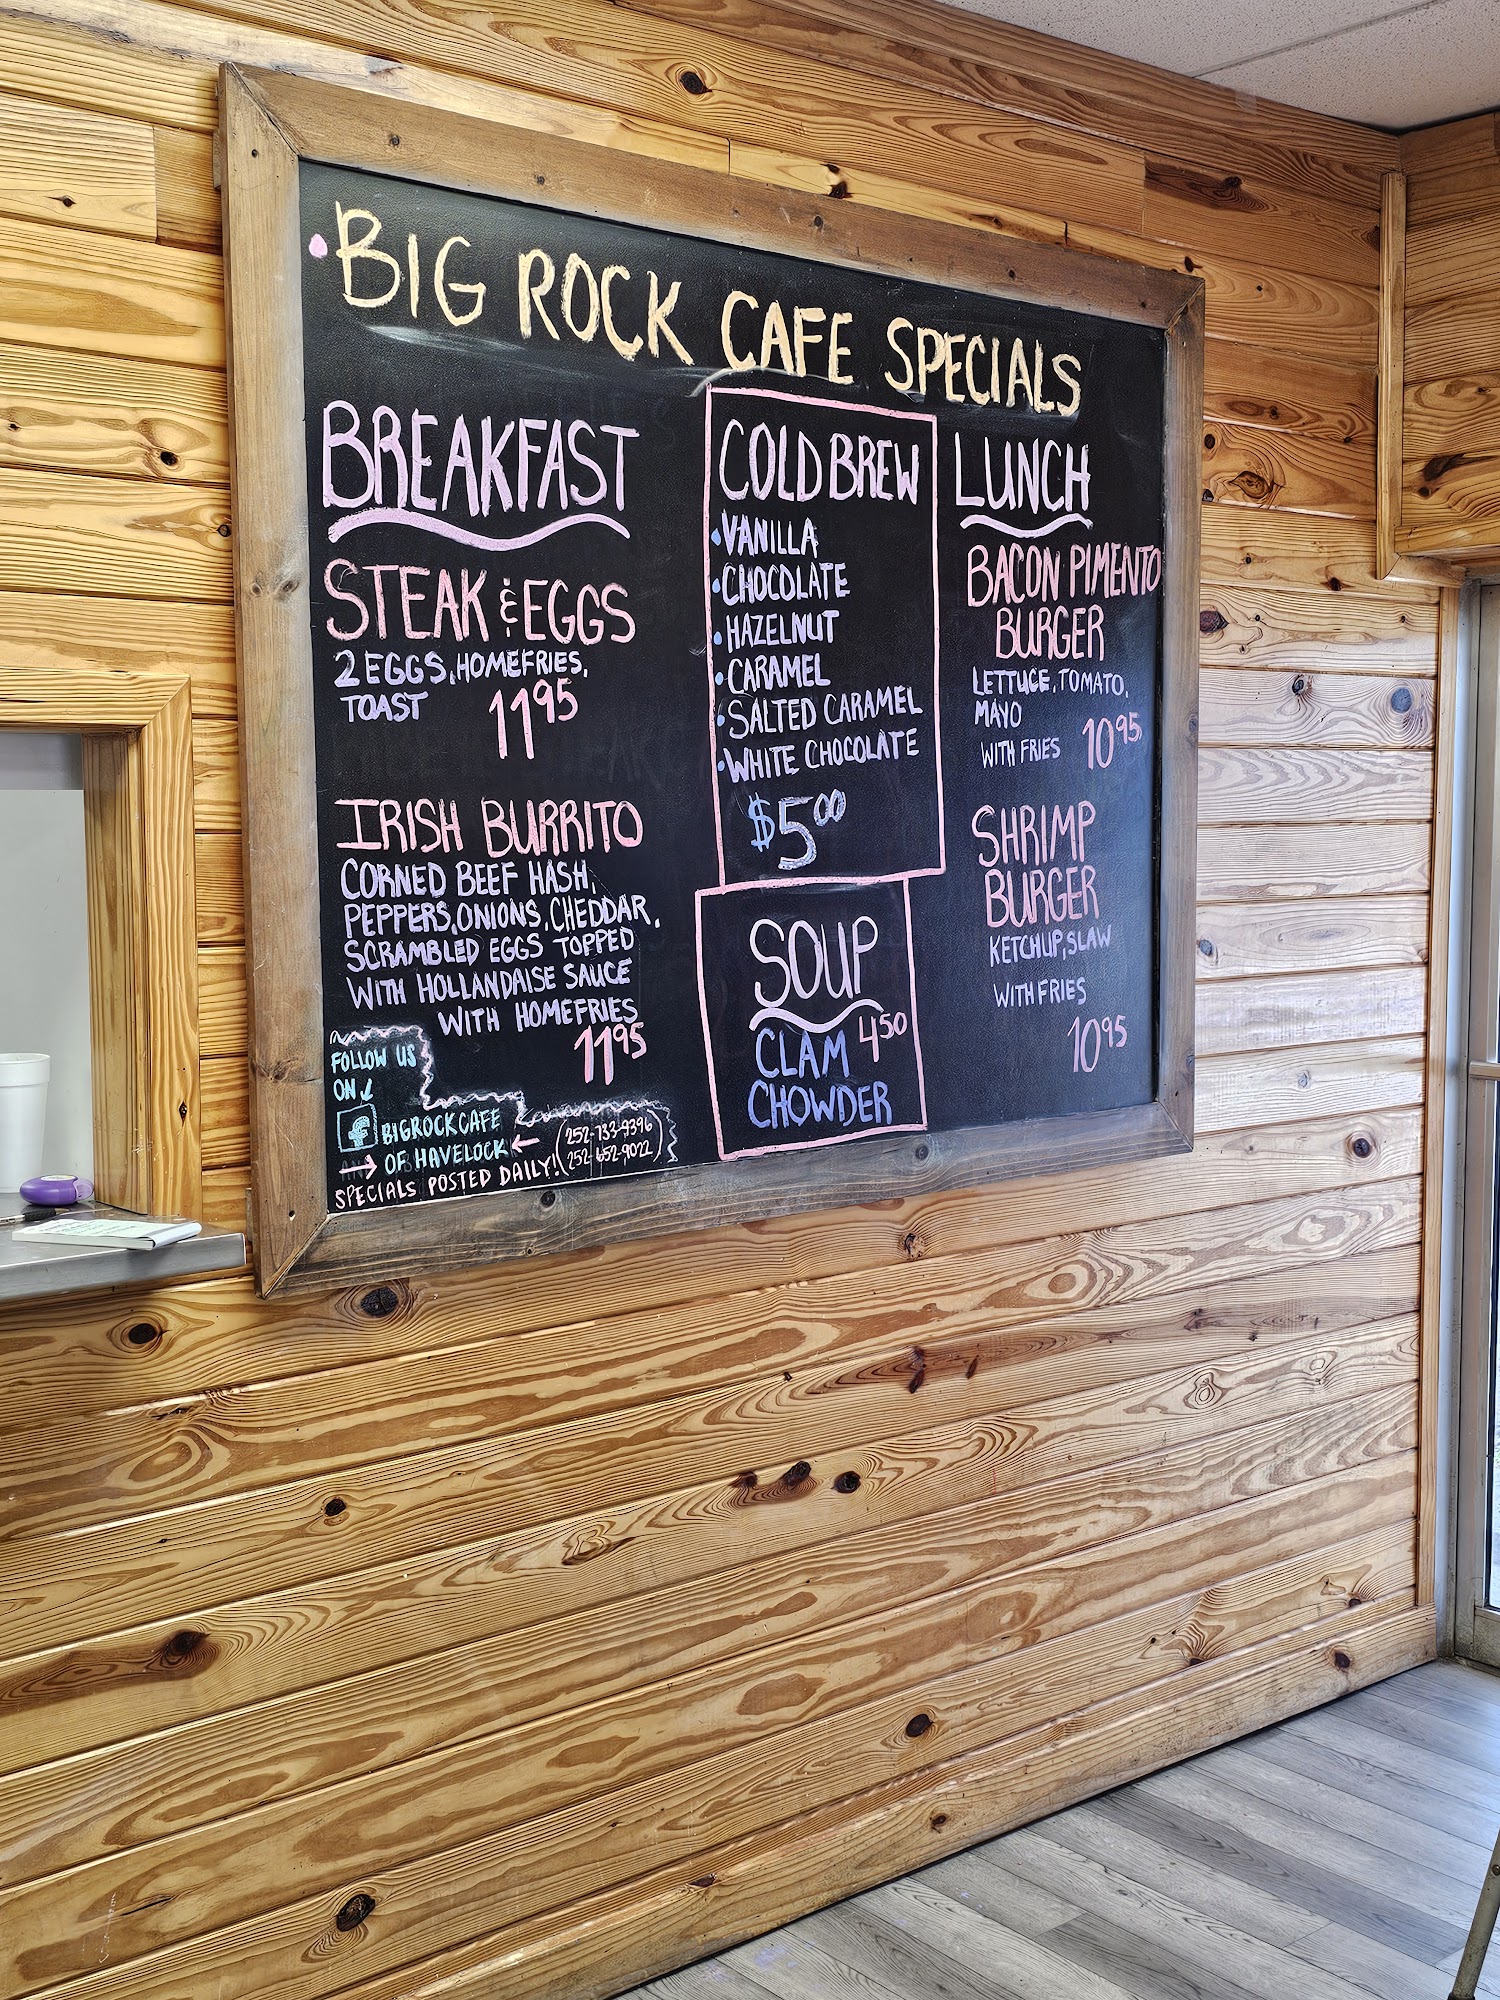 BIG ROCK CAFE SPECIALS
BREAKFAST
STEAK & EGGS
2 EGGS, HOMEFRIES,
TOAST
11 95
IRISH BURRITO
CORNED BEEF HASH,
PEPPERS, ONIONS, CHEDDAR,
SCRAMBLED EGGS TOPPED
WITH HOLLANDAISE SAUCE
WITH HOMEFRIES
11 95
FOLLOW US
ON
f BIGROCKCAFE
OF HAVELOCK
SPECIALS POSTED DAILY!
252-733-9396
252-652-9022
COLD BREW
•VANILLA
•CHOCOLATE
•HAZELNUT
•CARAMEL
•SALTED CARAMEL
•WHITE CHOCOLATE
$5 00
SOUP
CLAM 4 50
CHOWDER
LUNCH
BACON PIMENTO
BURGER
LETTUCE, TOMATO,
MAYO
WITH FRIES 10 95
SHRIMP
BURGER
KETCHUP, SLAW
WITH FRIES
10 95